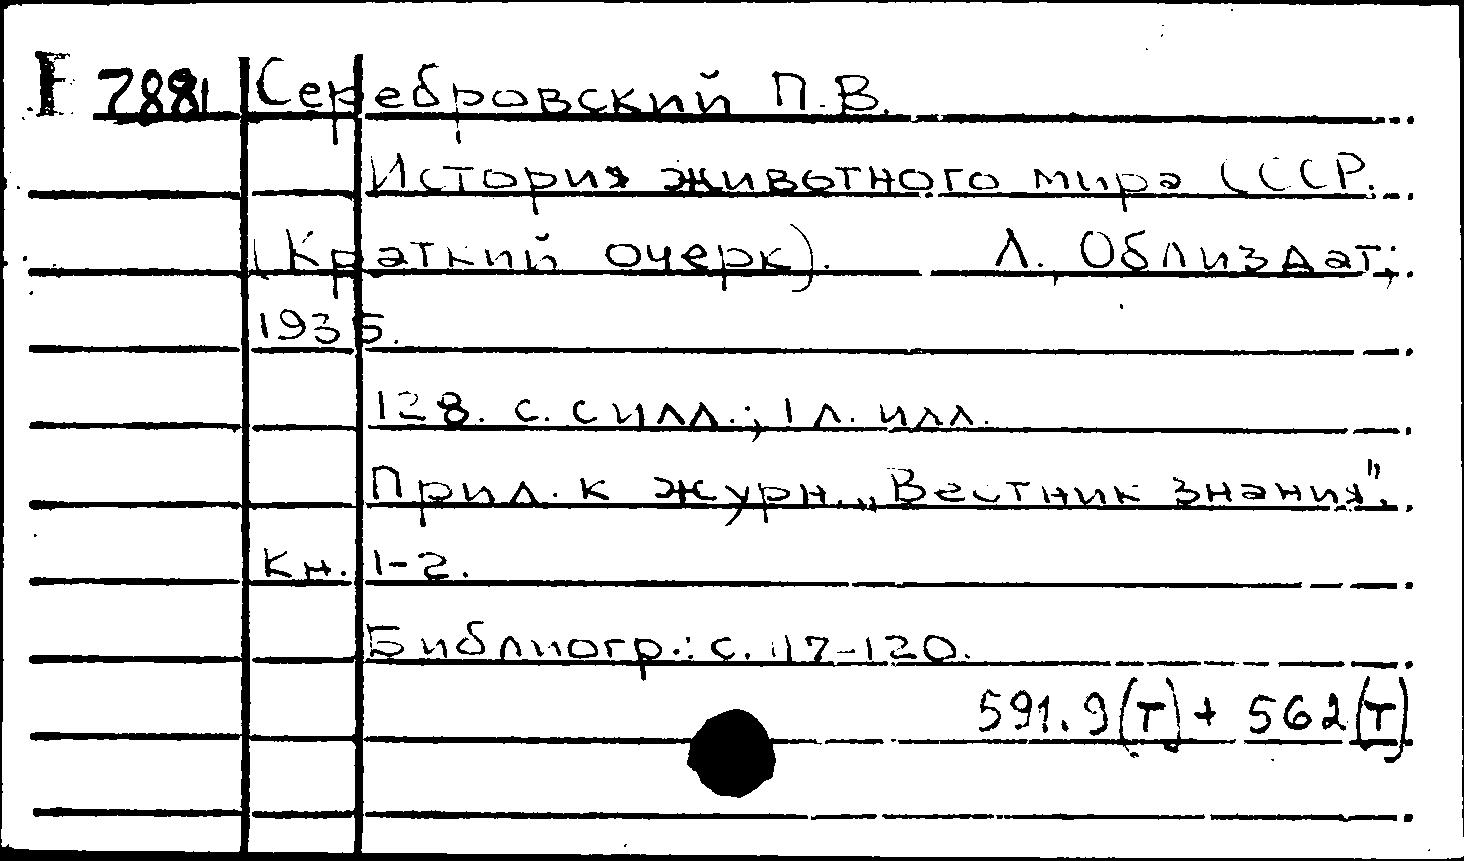 F 7881 Серебровский П.В.
История животного мира СССР.
(Краткий очерк). Л., Облиздат,
1935.
128. с. с илл.; 1 л. илл.
Прил. к журн. „Вестник знания".
Кн. 1-2.
Библиогр.: с. 117-120.
591.9(Т) + 562(Т)